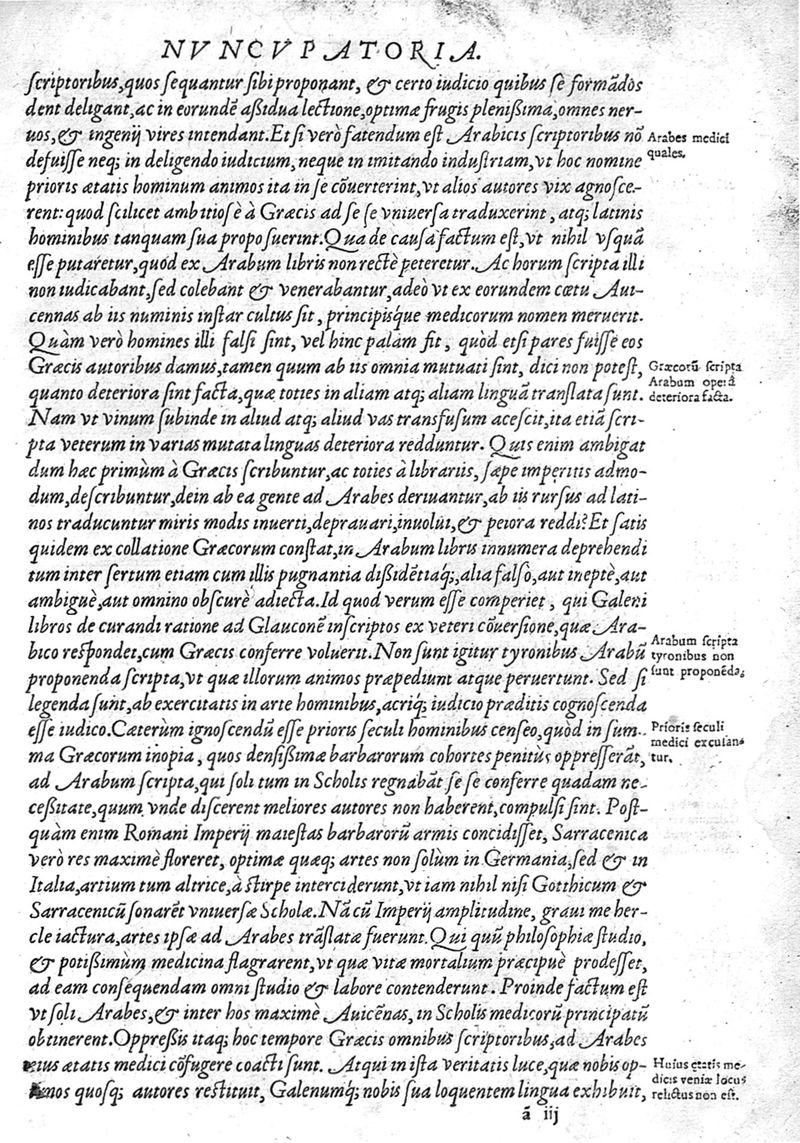 NVNCVPATORIA.
scriptoribus, quos sequantur sibi proponant, & certo iudicio quibus se formãdos
dent deligant, ac in eorundẽ aßidua lectione, optimæ frugis plenißima, omnes ner-
uos, & ingenij vires intendant. Et si verò fatendum est Arabicis scriptoribus nõ
defuisse neq; in deligendo iudicium, neque in imitando industriam, vt hoc nomine
prioris ætatis hominum animos ita in se cõuerterint, vt alios autores vix agnosce-
rent: quod scilicet ambitiosè à Græcis ad se se vniuersa traduxerint, atq; latinis
hominibus tanquam sua proposuerint. Qua de causa factum est, vt nihil vsquã
esse putaretur, quod ex Arabum libris non rectè peteretur. Ac horum scripta illi
non iudicabant, sed colebant & venerabantur, adeò vt ex eorundem cœtu Aui-
cennas ab iis numinis instar cultus sit, principisque medicorum nomen meruerit.
Quàm verò homines illi falsi sint, vel hinc palàm fit, quòd etsi pares fuisse eos
Græcis autoribus damus, tamen quum ab iis omnia mutuati sint, dici non potest,
quanto deteriora sint facta, quæ toties in aliam atq; aliam linguã translata sunt.
Nam vt vinum subinde in aliud atq; aliud vas transfusum acescit, ita etiã scri-
pta veterum in varias mutata linguas deteriora redduntur. Quis enim ambigat
dum hæc primùm à Græcis scribuntur, ac toties à librariis, sæpe imperitis admo-
dum, describuntur, dein ab ea gente ad Arabes deriuantur, ab iis rursus ad lati-
nos traducuntur miris modis inuerti, deprauari, inuolui, & peiora reddi? Et satis
quidem ex collatione Græcorum constat, in Arabum libris innumera deprehendi
tum inter sertum etiam cum illis pugnantia dißidẽtiaq;, alia falsò, aut ineptè, aut
ambiguè, aut omnino obscurè adiecta. Id quod verum esse comperiet, qui Galeni
libros de curandi ratione ad Glauconẽ inscriptos ex veteri cõuersione, quæ Ara-
bico respõdet, cum Græcis conferre voluerit. Non sunt igitur tyronibus Arabũ
proponenda scripta, vt quæ illorum animos præpediunt atque peruertunt. Sed si
legenda sunt, ab exercitatis in arte hominibus, acriq; iudicio præditis cognoscenda
esse iudico. Cæterùm ignoscendũ esse prioris seculi hominibus censeo, quòd in sum-
ma Græcorum inopia, quos densißimæ barbarorum cohortes penitùs oppresserãt,
ad Arabum scripta, qui soli tum in Scholis regnabãt se se conferre quadam ne-
ceßitate, quum vnde discerent meliores autores non haberent, compulsi sint. Post-
quàm enim Romani Imperij maiestas barbarorũ armis concidisset, Sarracenica
verò res maximè floreret, optimæ quæq; artes non solùm in Germania, sed & in
Italia, artium tum altrice, à stirpe interciderunt, vt iam nihil nisi Gotthicum &
Sarracenicũ sonarẽt vniuersæ Scholæ. Nã cũ Imperij amplitudine, graui me her-
cle iactura, artes ipsæ ad Arabes trãslatæ fuerunt. Qui quũ philosophiæ studio,
& potißimùm medicina flagrarent, vt quæ vitæ mortalium præcipuè prodesset,
ad eam consequendam omni studio & labore contenderunt. Proinde factum est
vt soli Arabes, & inter hos maximè Auicẽnas, in Scholis medicorũ principatũ
obtinerent. Oppreßis itaq; hoc tempore Græcis omnibus scriptoribus, ad Arabes
eius ætatis medici cõfugere coacti sunt. Atqui in ista veritatis luce, quæ nobis op-
timos quosq; autores restituit, Galenumq; nobis sua loquentem lingua exhibuit,
ã iij
Arabes medici
quales.
Græcorũ scripta
Arabum operâ
deteriora facta.
Arabum scripta
tyronibus non
sunt proponẽda.
Prioris seculi
medici excusan-
tur.
Huius ætatis me-
dicis veniæ locus
relictus non est.